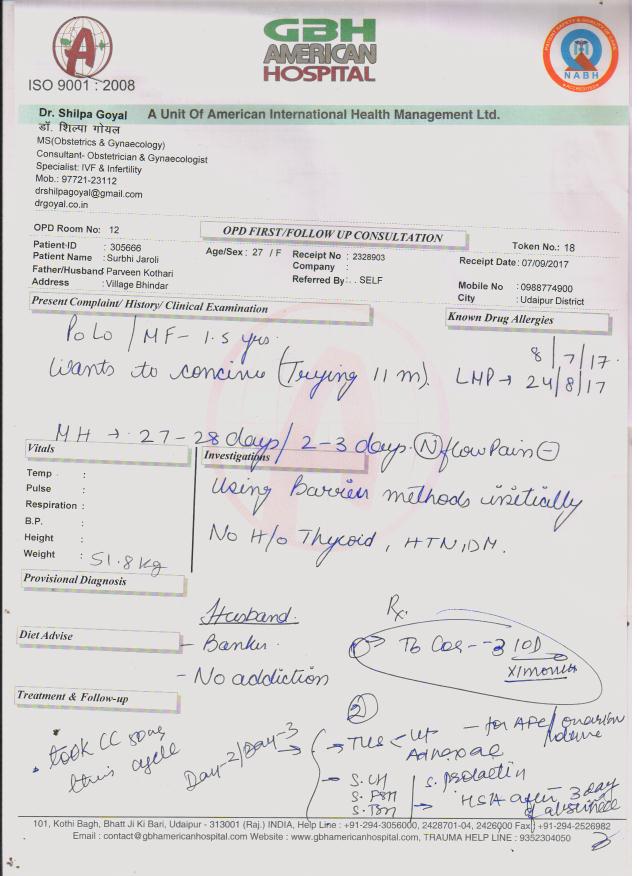 GBH
AMERICAN
HOSPITAL
A
ISO 9001 : 2008
NABH
Dr. Shilpa Goyal
A Unit Of American International Health Management Ltd.
डॉ. शिल्पा गोयल
MS(Obstetrics & Gynaecology)
Consultant- Obstetrician & Gynaecologist
Specialist: IVF & Infertility
Mob.: 97721-23112
drshilpagoyal@gmail.com
drgoyal.co.in
OPD Room No: 12
OPD FIRST/FOLLOW UP CONSULTATION
Token No.: 18
Patient-ID : 305666
Age/Sex : 27 / F
Receipt No : 2328903
Receipt Date: 07/09/2017
Patient Name : Surbhi Jaroli
Company :
Father/Husband Parveen Kothari
Referred By : . . SELF
Mobile No : 0988774900
Address : Village Bhindar
City : Udaipur District
Present Complaint/ History/ Clinical Examination
Known Drug Allergies
P0L0 / MF- 1.5 yrs.
8/7/17.
Wants to concive (Trying 11 m). LMP → 24/8/17
MH → 27-28 days/ 2-3 days. N flow Pain -
Vitals
Investigations
Temp :
Pulse :
Respiration :
B.P. :
Height :
Weight : 51.8 kg
Using Barrier methods initially
No H/o Thyroid, HTN, DM.
Provisional Diagnosis
Husband.
Rx.
Diet Advise
- Banker
- No addiction
1
10D
x1month
Treatment & Follow-up
2
. took CC 50mg
this cycle
Day-2/Day-3 →
→ TVS < Ut
Adnexae
- for AFC/ovarian
volume
- S. LH
S. FSH
S. TSH
S. prolactin
→ HSA after 3 day
of abstinence
101, Kothi Bagh, Bhatt Ji Ki Bari, Udaipur - 313001 (Raj.) INDIA, Help Line : +91-294-3056000, 2428701-04, 2426000 Fax : +91-294-2526982
Email : contact@gbhamericanhospital.com Website : www.gbhamericanhospital.com, TRAUMA HELP LINE : 9352304050